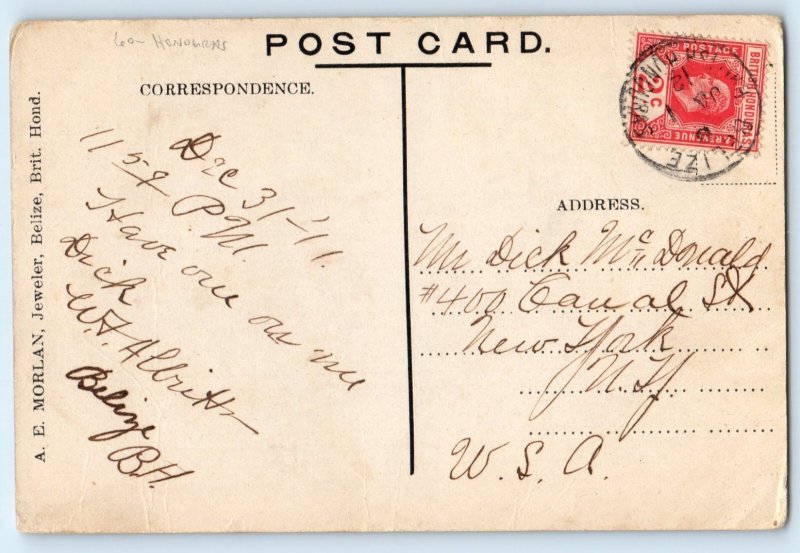 60- HONOURAS
POST CARD.
CORRESPONDENCE.
A. E. MORLAN, Jeweler, Belize, Brit. Hond.
Dec 31-'11.
1159 P.M.
Have one on me
Dick
W.F. Albritton
Belize
B.H.
POSTAGE
BRITISH HONDURAS
& REVENUE
2C
BELIZE
JA
12
ADDRESS.
Mr Dick McDonald
#400 Canal St
New York
N.Y.
U.S.A.